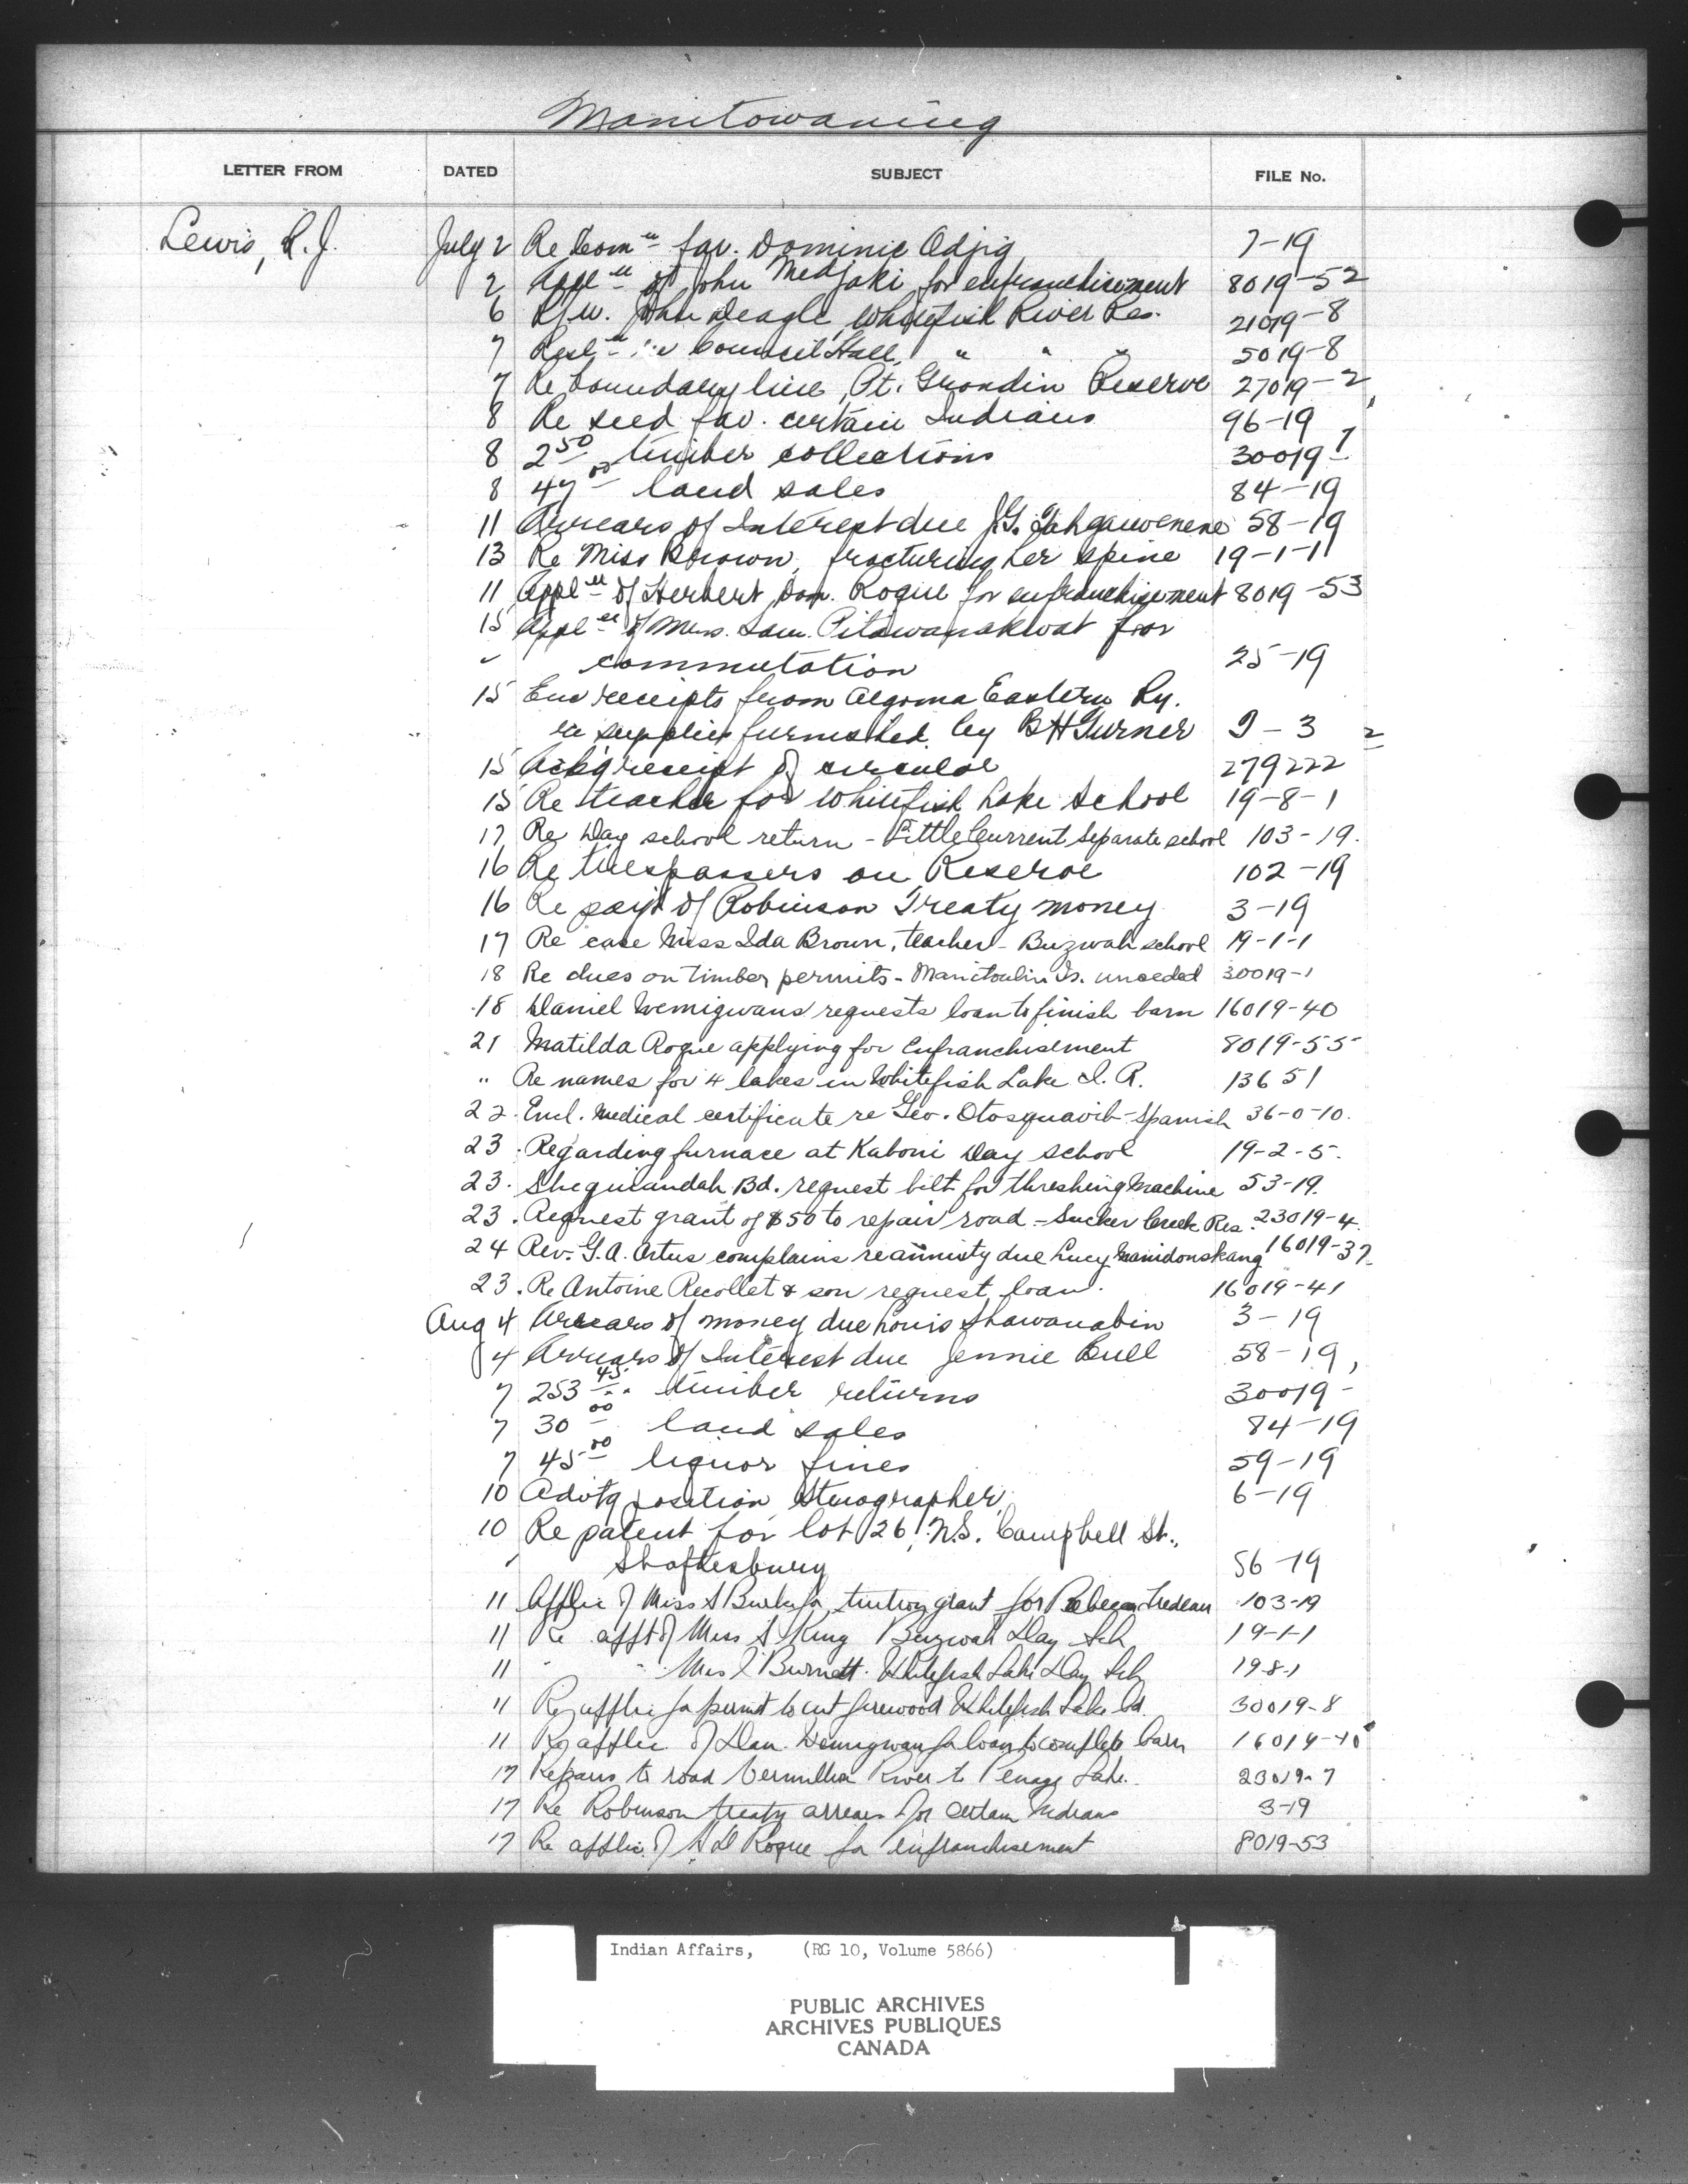 Manitowaning
LETTER FROM DATED SUBJECT FILE No.
Lewis, R.J. July 2 Re Com'n fav. Dominic Odjig 7-19
2 Appl'n of John Medjaki for enfranchisement 8019-52
6 John Neagle, Whitefish River Res. 21019-8
7 Council Hall, " " " 5019-8
7 Re boundary line, Pt. Grondin Reserve 27019-2
8 Re seed fav. certain Indians 96-19
8 2 50 timber collections 30019-1
8 47 00 land sales 84-19
11 Arrears of Interest due J.G. 58-19
13 Re Miss Brown, fracturing her spine 19-1-1
11 Appl'n of Herbert Dom. Roque for enfranchisement 8019-53
15 Appl'n of Mrs. Sam. Pitawanakwat for
" commutation 25-19
15 Enc receipts from Algoma Eastern Ry.
re supplies furnished by B H Turner 9-3
15 Ackg receipt of circular 279222
15 Re teacher for Whitefish Lake School 19-8-1
17 Re Day school return - Little Current Separate school 103-19.
16 Re trespassers on Reserve 102-19
16 Re payt of Robinson Treaty money 3-19
17 Re case Miss Ida Brown, teacher - Buzwah school 19-1-1
18 Re dues on timber permits - Manitoulin Is. unceded 30019-1
18 Daniel Wemigwans requests loan to finish barn 16019-40
21 Matilda Roque applying for Enfranchisement 8019-55
" Re names for 4 lakes in Whitefish Lake I.R. 13651
22. Encl. Medical certificate re Geo. - Spanish 36-0-10.
23. Regarding furnace at Kaboni Day school 19-2-5.
23. Sheguiandah Bd. request bilt for threshing Machine 53-19.
23. Request grant of $50 to repair road - Sucker Creek Res. 23019-4.
24 Rev. G.A. Artus complains re annuity due Lucy 16019-37
23. Re Antoine Recollet & son request loan. 16019-41
Aug 4 Arrears of money due Louis Shawanabin 3-19
4 Arrears of Interest due Jennie Bull 58-19,
7 253 45 timber returns 30019-
7 30 00 land sales 84-19
7 45 00 liquor fines 59-19
10 Advtg position Stenographer 6-19
10 Re patent for lot 26, N.S. Campbell St.,
" Shaftesbury 56-19
11 Applic of Miss S Burke for tuition grant for Rebecca 103-19
11 Re appt of Miss S King Buzwah Day Sch 19-1-1
11 " " Mrs I Burnett. Whitefish Lake Day Sch 19-8-1
11 Re applic for permit to cut firewood Whitefish Lake Bd. 30019-8
11 Re applic of Dan. Wemigwans for loan to complete barn 16019-40
17 Repairs to road Vermillion River to Penage Lake. 23019-7
17 Re Robinson treaty arrears for certain Indians 3-19
17 Re applic. of H D Roque for enfranchisement 8019-53
Indian Affairs, (RG 10, Volume 5866)
PUBLIC ARCHIVES
ARCHIVES PUBLIQUES
CANADA